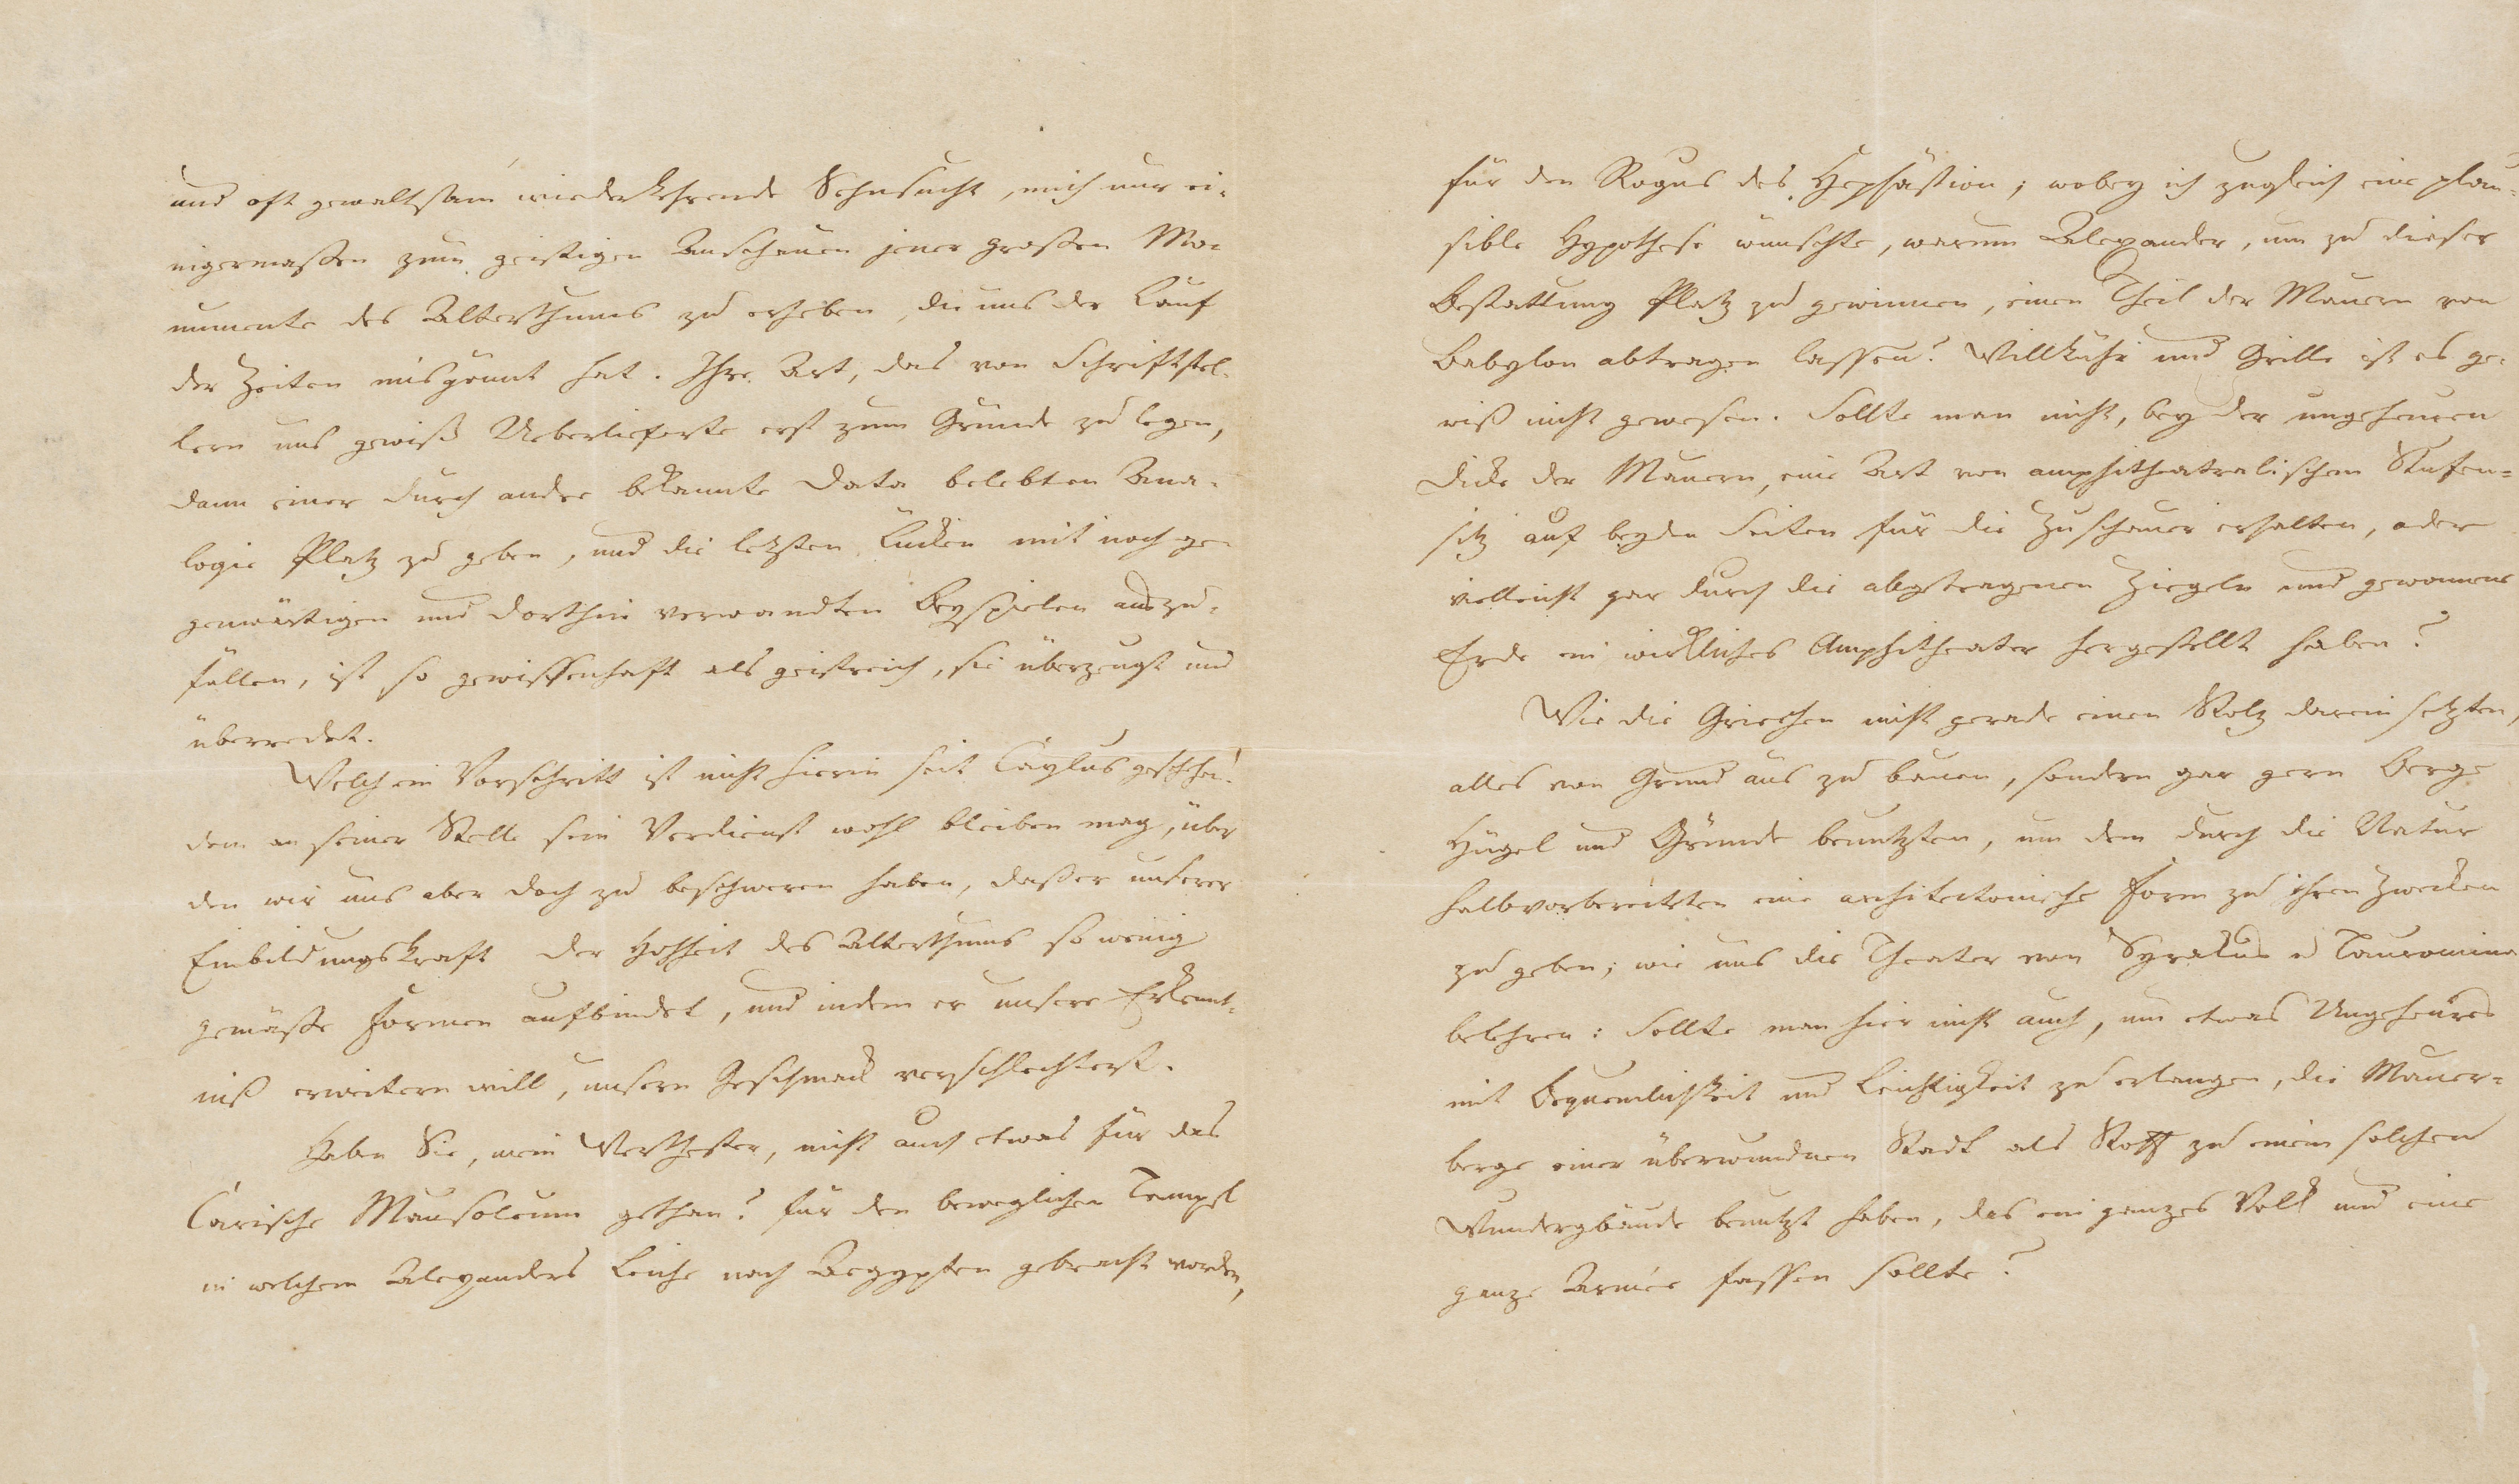 und oft gewaltsam wiederkehrende Sehnsucht, mich nur ei-
nigermaßen zum geistigen Anschauen jener großen Mo-
numente des Alterthums zu erheben, die uns der Lauf
der Zeiten misgönnt hat. Ihre Art, das von Schriftstel-
lern uns gewiß Ueberlieferte erst zum Grunde zu legen,
dann einer durch andre bekannte Data belebten Ana-
logie Platz zu geben, und die letzten Lücken mit noch ge-
genwärtigen und dorthin verwandten Beyspielen auszu-
füllen, ist so gewissenhaft als geistreich, sie überzeugt und
überredet.
Welch ein Vorschritt ist nicht hierin seit Caylus geschehn!
dem an seiner Stelle sein Verdienst wohl bleiben mag, über
den wir uns aber doch zu beschweren haben, daß er unserer
Einbildungskraft der Hohheit des Alterthums so wenig
gemäße Formen aufbindet, und indem er unsere Erkennt-
niß erweitern will, unsern Geschmack verschlechtert.
Haben Sie, mein Werthester, nicht auch etwas für das
Carische Mausoleum gethan? für den beweglichen Tempel
in welchem Alexanders Leiche nach Aegypten gebracht worden,
für den Rogus des Hephästion; wobey ich zugleich eine plau-
sible Hypothese wünschte, warum Alexander, um zu dieser
Bestattung Platz zu gewinnen, einen Theil der Mauern von
Babylon abtragen lassen? Willkühr und Grille ist es ge-
wiß nicht gewesen. Sollte man nicht, bey der ungeheuren
Dicke der Mauern, eine Art von amphitheatralischem Stufen-
sitz auf beyden Seiten für die Zuschauer erhalten, oder
vielleicht gar durch die abgetragenen Ziegeln und gewonnene
Erde ein wirkliches Amphitheater hergestellt haben?
Wie die Griechen nicht gerade einen Stolz darein setzten,
alles von Grund aus zu bauen, sondern gar gern Berge
Hügel und Gründe benutzten, um dem durch die Natur
halbvorbereiteten eine architektonische Form zu ihren Zwecken
zu geben; wie uns die Theater von Syrakus u Tauromina
belehren: Sollte man hier nicht auch, um etwas Ungeheures
mit Bequemlichkeit und Leichtigkeit zu erlangen, die Mauer-
berge einer überwundnen Stadt als Stoff zu einem solchen
Wundergbäude benutzt haben, das ein ganzes Volk und eine
ganze Armée fassen sollte?